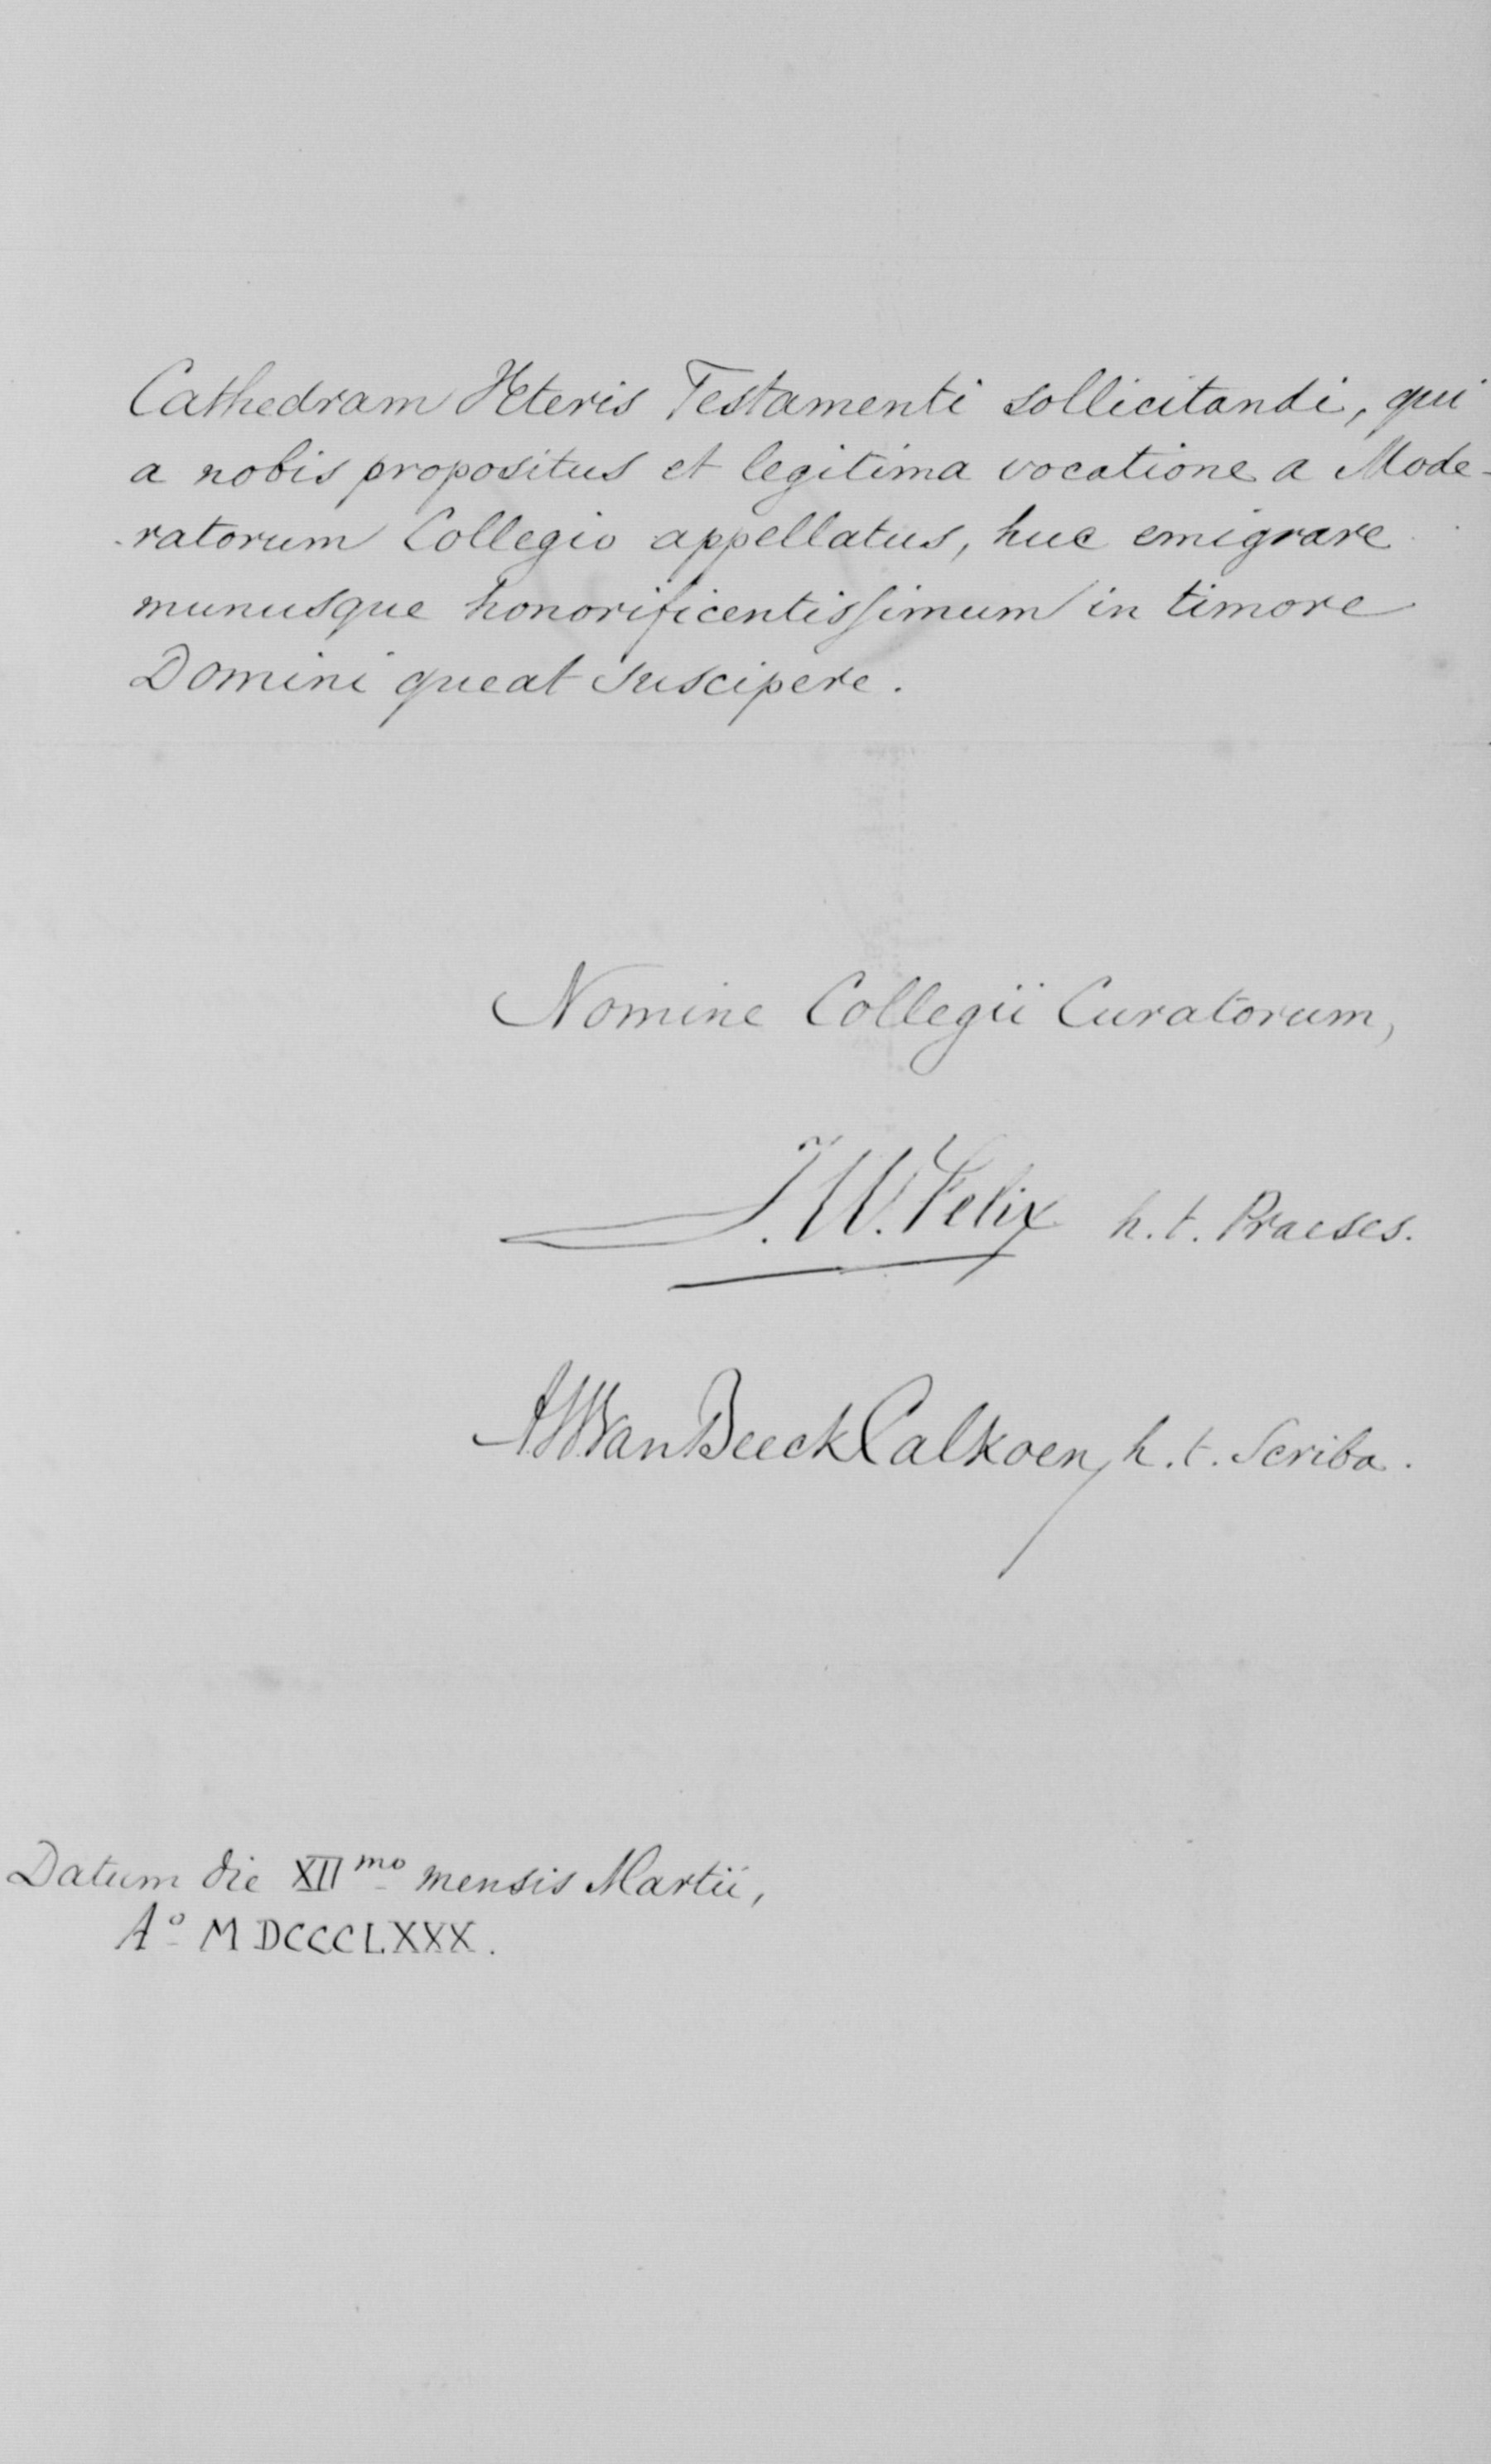 Cathedram Veteris Testamenti sollicitandi, qui
a nobis propositus et legitima vocatione a Mode-
-ratorum Collegio appellatus, huc emigrare
munusque honorificentissimum in timore
Domini queat suscipere.
Nomine Collegii Curatorum,
J. W. Felix h. t. Praeses.
A W Van Beeck Calkoen, h. t. Scriba.
Datum die XIImo mensis Martii,
Ao MDCCCLXXX.